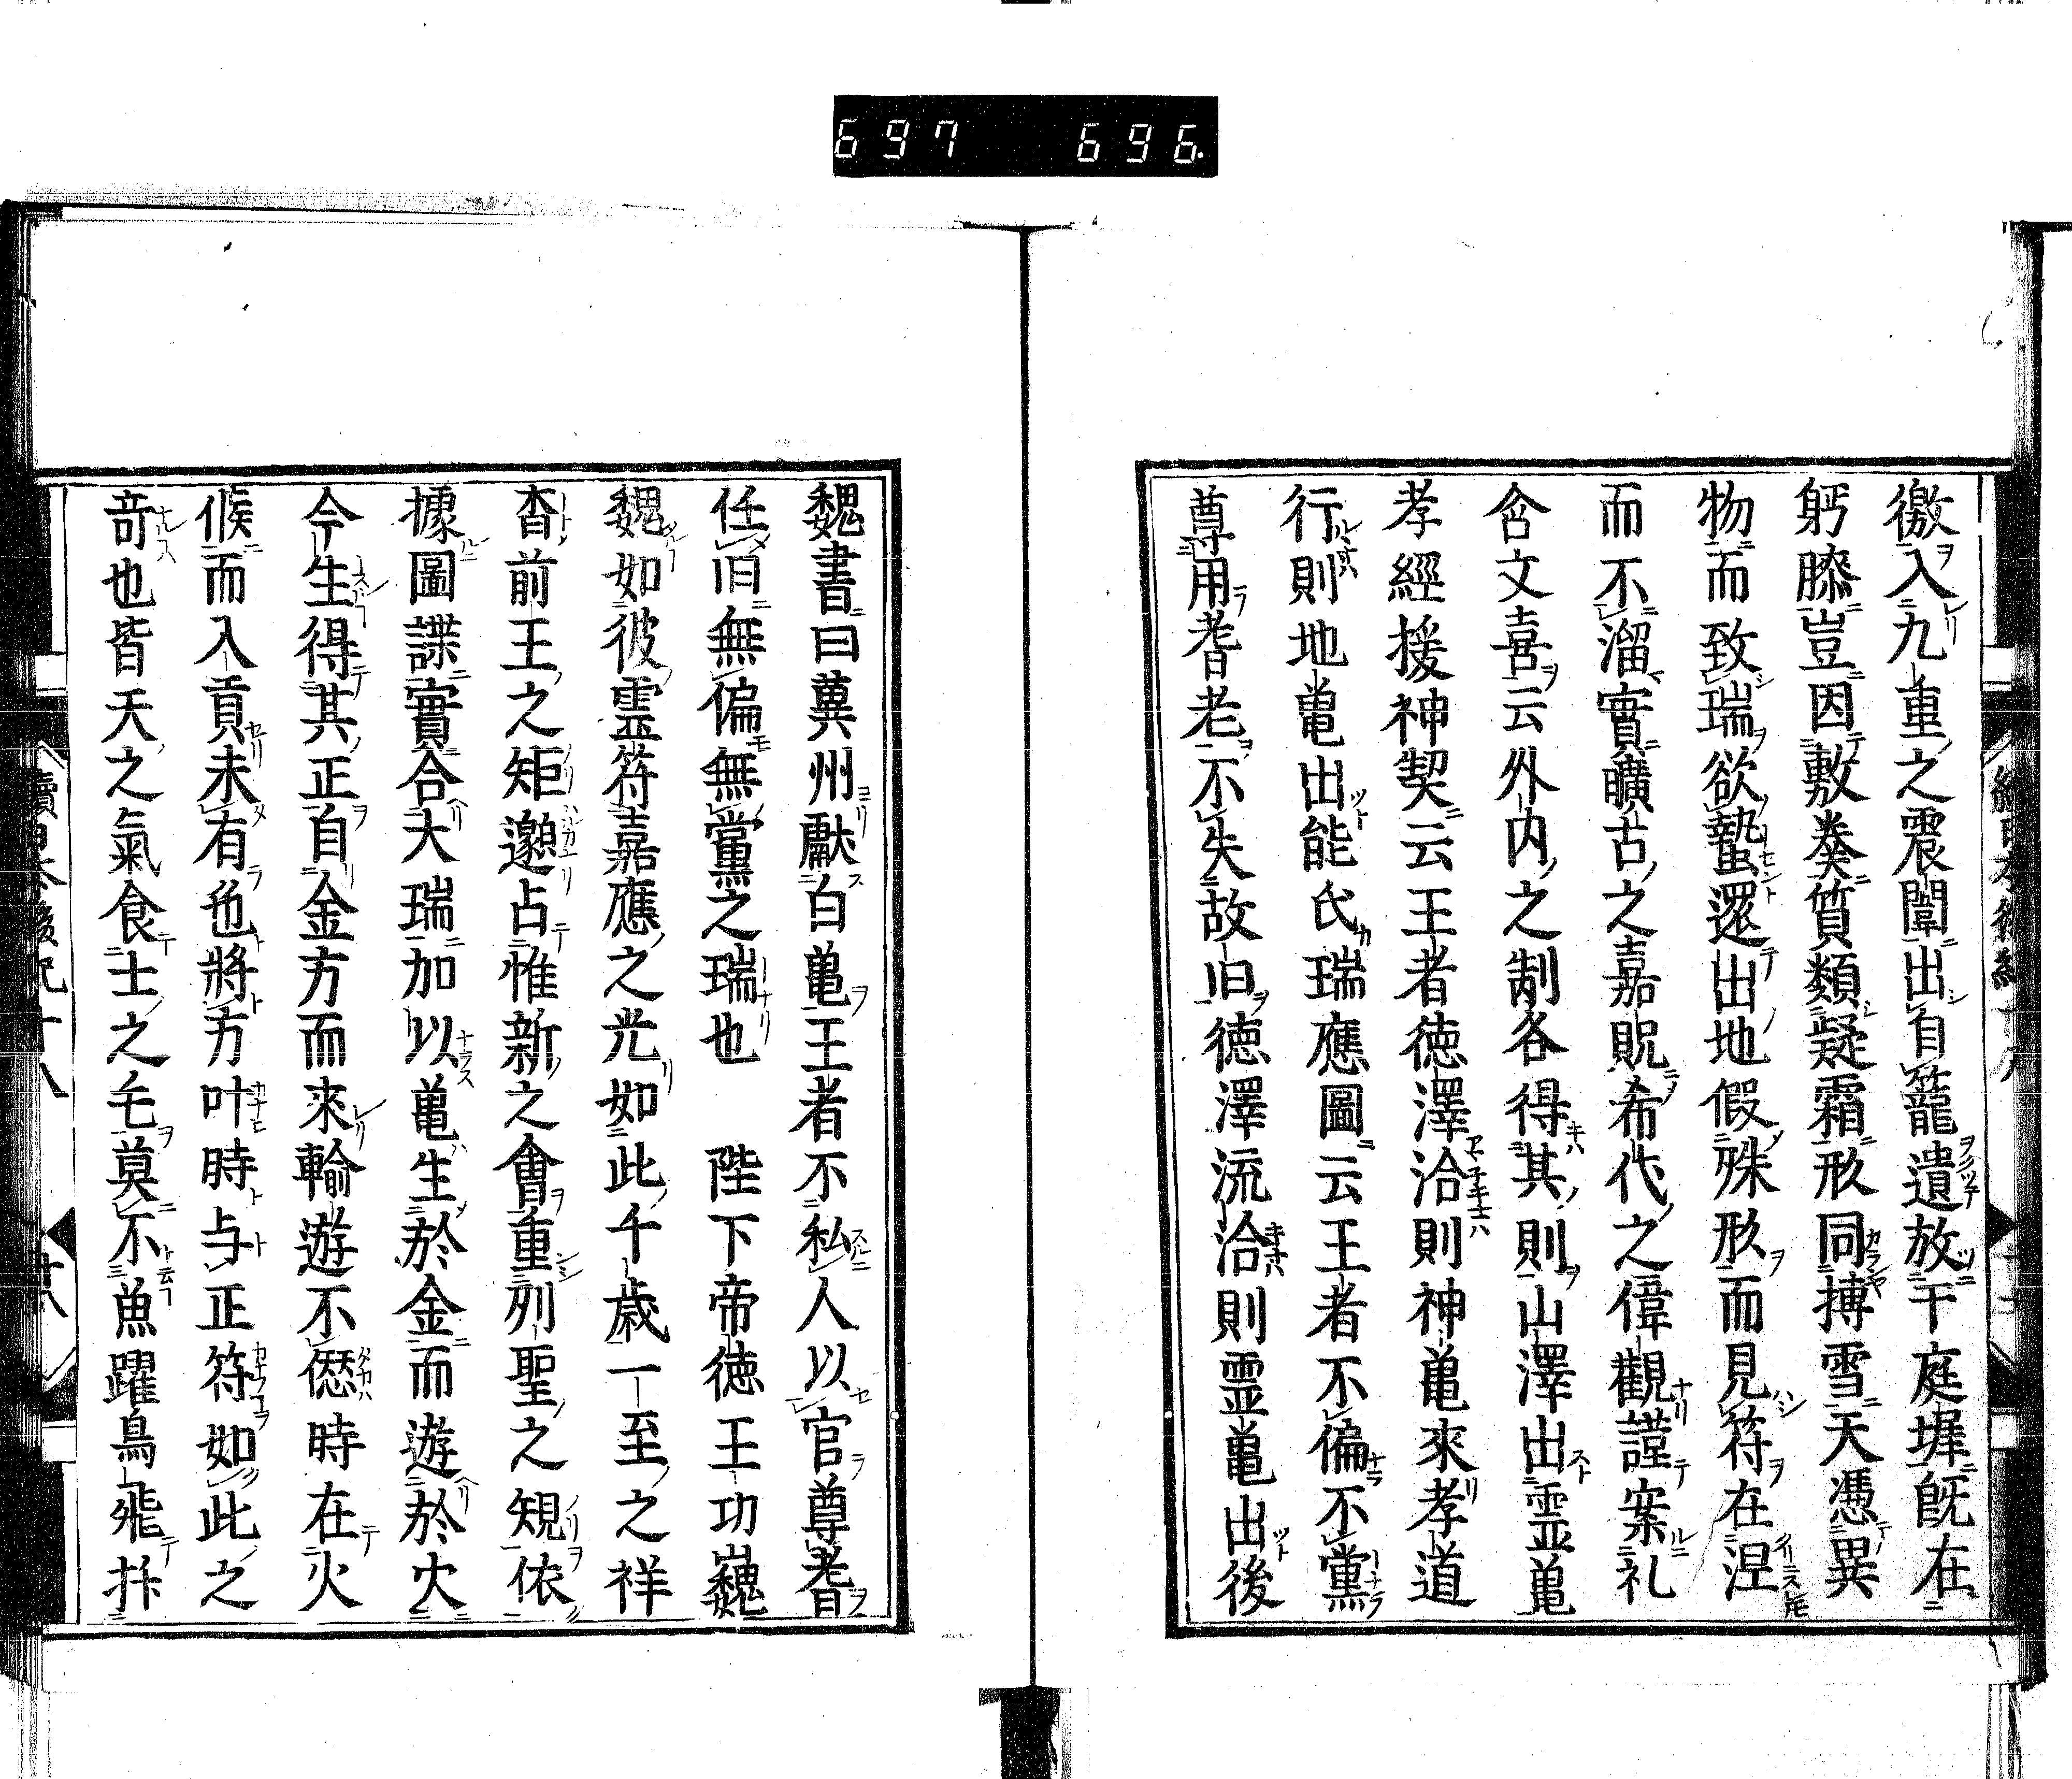 697 696.
徼入九重之震闈出自籠遺放干庭墀既在
躬滕豈因敷養質類疑霜形同摶雪天憑異
物而致瑞欲蟄還出地假殊形而見符在涅
而不溜實曠古之嘉貺希代之偉觀謹案礼
含文喜云外内之制各得其則山澤出霊亀
孝經援神契云王者徳澤洽則神亀來孝道
行則地亀出能氏瑞應圖云王者不偏不黨
尊用耆老不失故旧徳澤流洽則霊亀出後
魏書曰冀州獻白亀王者不私人以官尊耆
任旧無偏無黨之瑞也　陛下帝徳王功巍
魏如彼霊符嘉應之光如此千歳一至之祥
杳前王之矩邈占惟新之會重列聖之規依
據圖諜實合大瑞加以亀生於金而遊於火
今生得其正自金方而來輸遊不愆時在火
候而入貢未有色將方叶時与正符如此之
奇也皆天之氣食士之毛莫不魚躍鳥飛抃